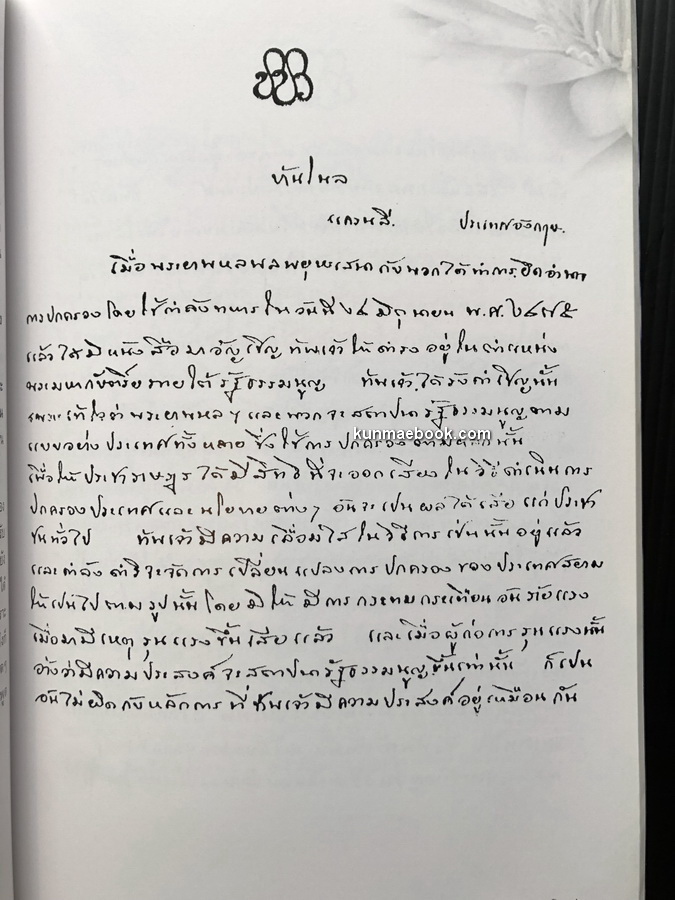 ปปร
บ้านโนล
แครนลี. ประเทศอังกฤษ.
เมื่อพระยาพหลพลพยุหเสนากับพวกได้ทำการยึดอำนาจ
การปกครองโดยใช้กำลังทหารในวันที่ ๒๔ มิถุนายน พ.ศ. ๒๔๗๕
แล้วได้มีหนังสือมาอัญเชิญข้าพเจ้าให้ดำรงอยู่ในตำแหน่ง
พระมหากษัตริย์ภายใต้รัฐธรรมนูญ ข้าพเจ้าได้รับคำเชิญนั้น
เพราะเข้าใจว่าพระยาพหลฯ และพวกจะสถาปนารัฐธรรมนูญตาม
แบบอย่างประเทศทั้งหลายซึ่งใช้การปกครองตามหลักนั้น
kunmaebook.com
เพื่อให้ประชาราษฎรได้มีสิทธิที่จะออกเสียงในวิธีดำเนินการ
ปกครองประเทศและนโยบายต่างๆ อันจะเป็นผลได้เสียแก่ประชา
ชนทั่วไป ข้าพเจ้ามีความเลื่อมใสในวิธีการเช่นนั้นอยู่แล้ว
และกำลังดำริจะจัดการเปลี่ยนแปลงการปกครองของประเทศสยาม
ให้เป็นไปตามรูปนั้น โดยมิให้มีการกระทบกระเทือนอันร้ายแรง
เมื่อมามีเหตุรุนแรงขึ้นเสียแล้ว และเมื่อผู้ก่อการรุนแรงนั้น
อ้างว่ามีความประสงค์จะสถาปนารัฐธรรมนูญขึ้นเท่านั้น ก็เป็น
อันไม่ผิดกับหลักการที่ข้าพเจ้ามีความประสงค์อยู่เหมือนกัน